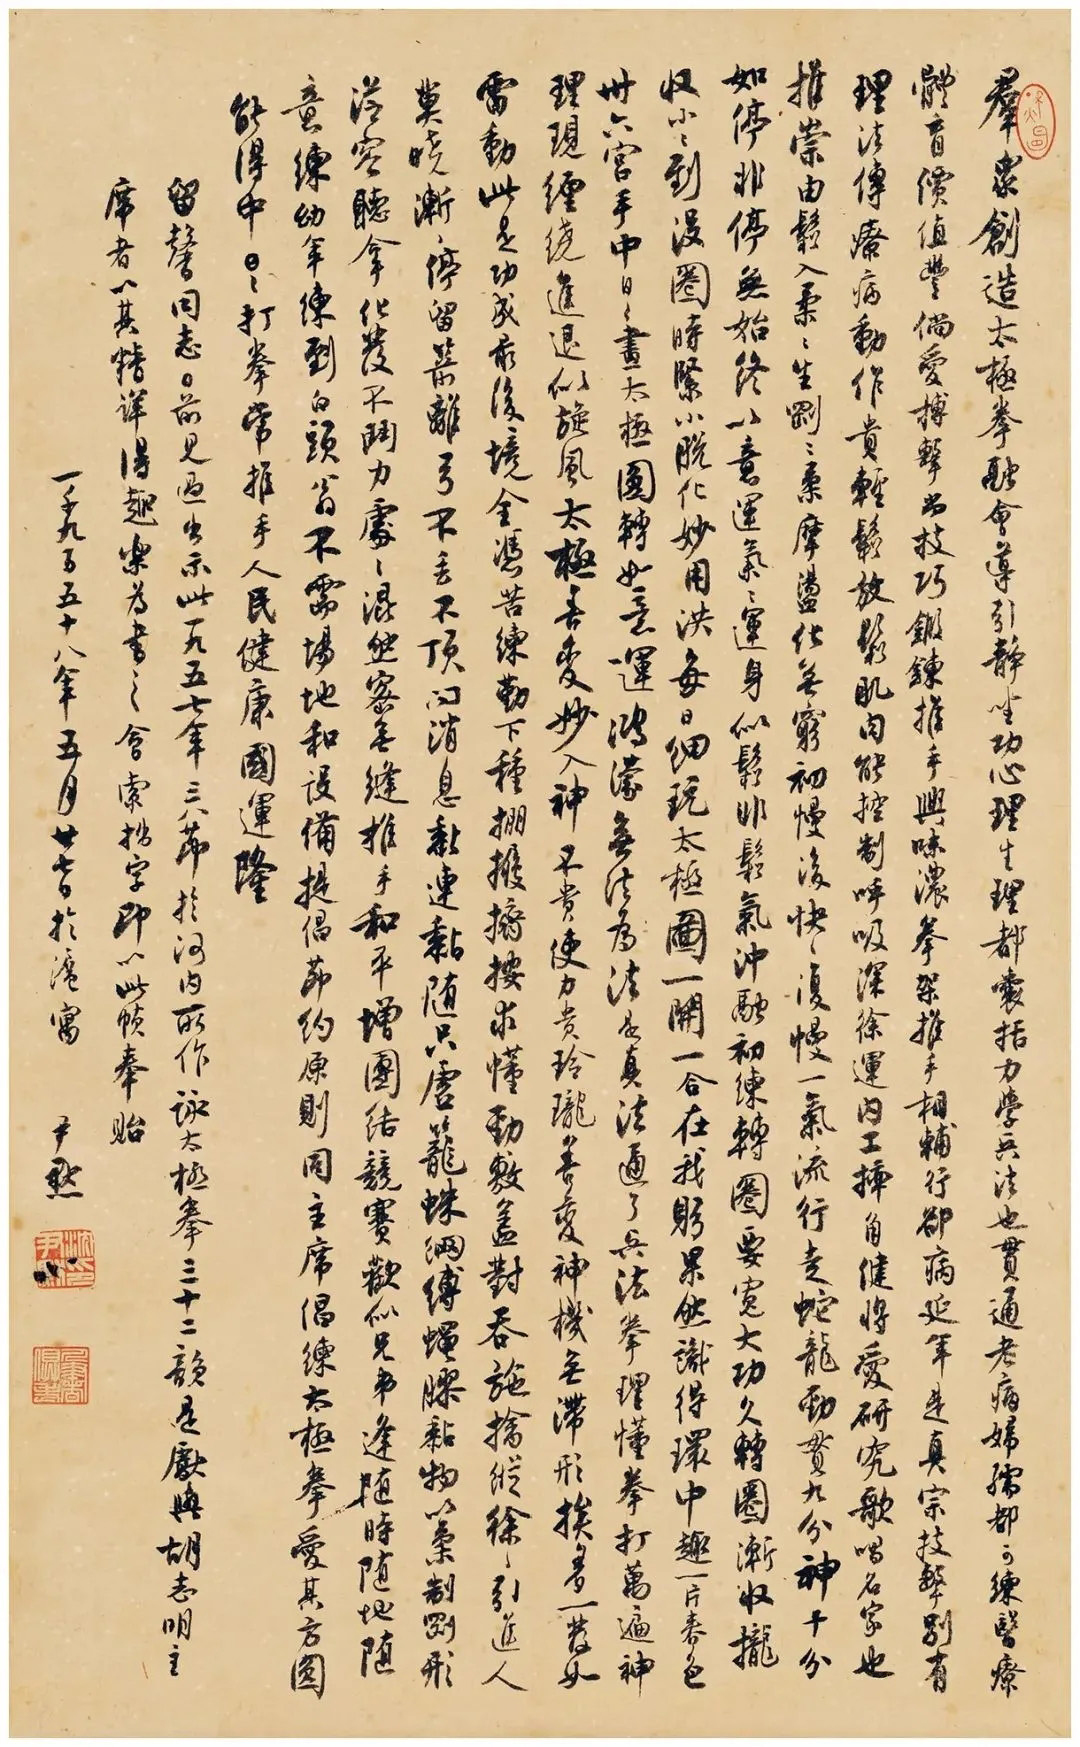 羣衆創造太極拳融會導引靜坐功心理生理都囊括力學兵法也貫通老病婦孺都可練醫療
體育價值豐倘愛搏擊尚技巧鍛鍊推手興味濃拳架推手相輔行卻病延年是真宗技擊別有
理法傳療病動作貴輕鬆放鬆肌肉能控制呼吸深徐運內工摔角健將愛研究歌唱名家也
推崇由鬆入柔〻生剛〻柔摩盪化無窮初慢後快〻復慢一氣流行走蛇龍勁貫九分神十分
如停非停無始終以意運氣〻運身似鬆非鬆氣沖融初練轉圈要寬大功久轉圈漸收攏
收小〻到沒圈時緊小脫化妙用洪每日細玩太極圖一開一合在我躬果然識得環中趣一片春色
卅六宮手中日〻畫太極圓轉如意運鴻濛無法為法是真法通了兵法拳理懂拳打萬遍神
理現纏繞進退似旋風太極善變妙入神不貴使力貴玲瓏善變神機無滯形挨着一發如
雷動此是功成最後境全憑苦練勤下種掤履擠按求懂勁敷蓋對吞施擒縱徐〻引進人
莫曉漸〻停留箭離弓不丟不頂問消息黏連黏隨只唐籠蛛網縛蠅膠黏物以柔制剛形
從容聽拿化發不鬪力處〻混然密無縫推手和平增團結競賽歡似兄弟逢隨時隨地隨
意練幼年練到白頭翁不需場地和設備提倡節約原則同主席倡練太極拳愛其方圓
能得中日〻打拳常推手人民健康國運隆
留馨同志日前見過出示此一九五七年三八節於河內所作詠太極拳三十二韻是獻與胡志明主
席者以其精詳得趣樂為書之會索拙字即以此幀奉貽
一千九百五十八年五月廿七日於滬寓 尹默